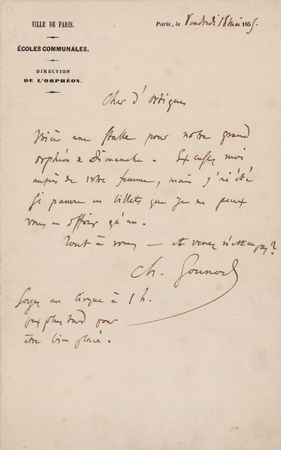 VILLE DE PARIS.
ÉCOLES COMMUNALES.
DIRECTION
DE L'ORPHÉON.
Paris, le Vendredi 18 mai 1855
Cher d'Ortigue
Voici une stalle pour notre grand
orphéon Dimanche. Excusez moi
auprès de votre femme, mais j'ai été
si pauvre en billets que je ne peux
vous en offrir qu'un.
Tout à vous — et venez
Ch. Gounod
Soyez au Cirque à 1 h.
pas plus tard pour
être bien placé.